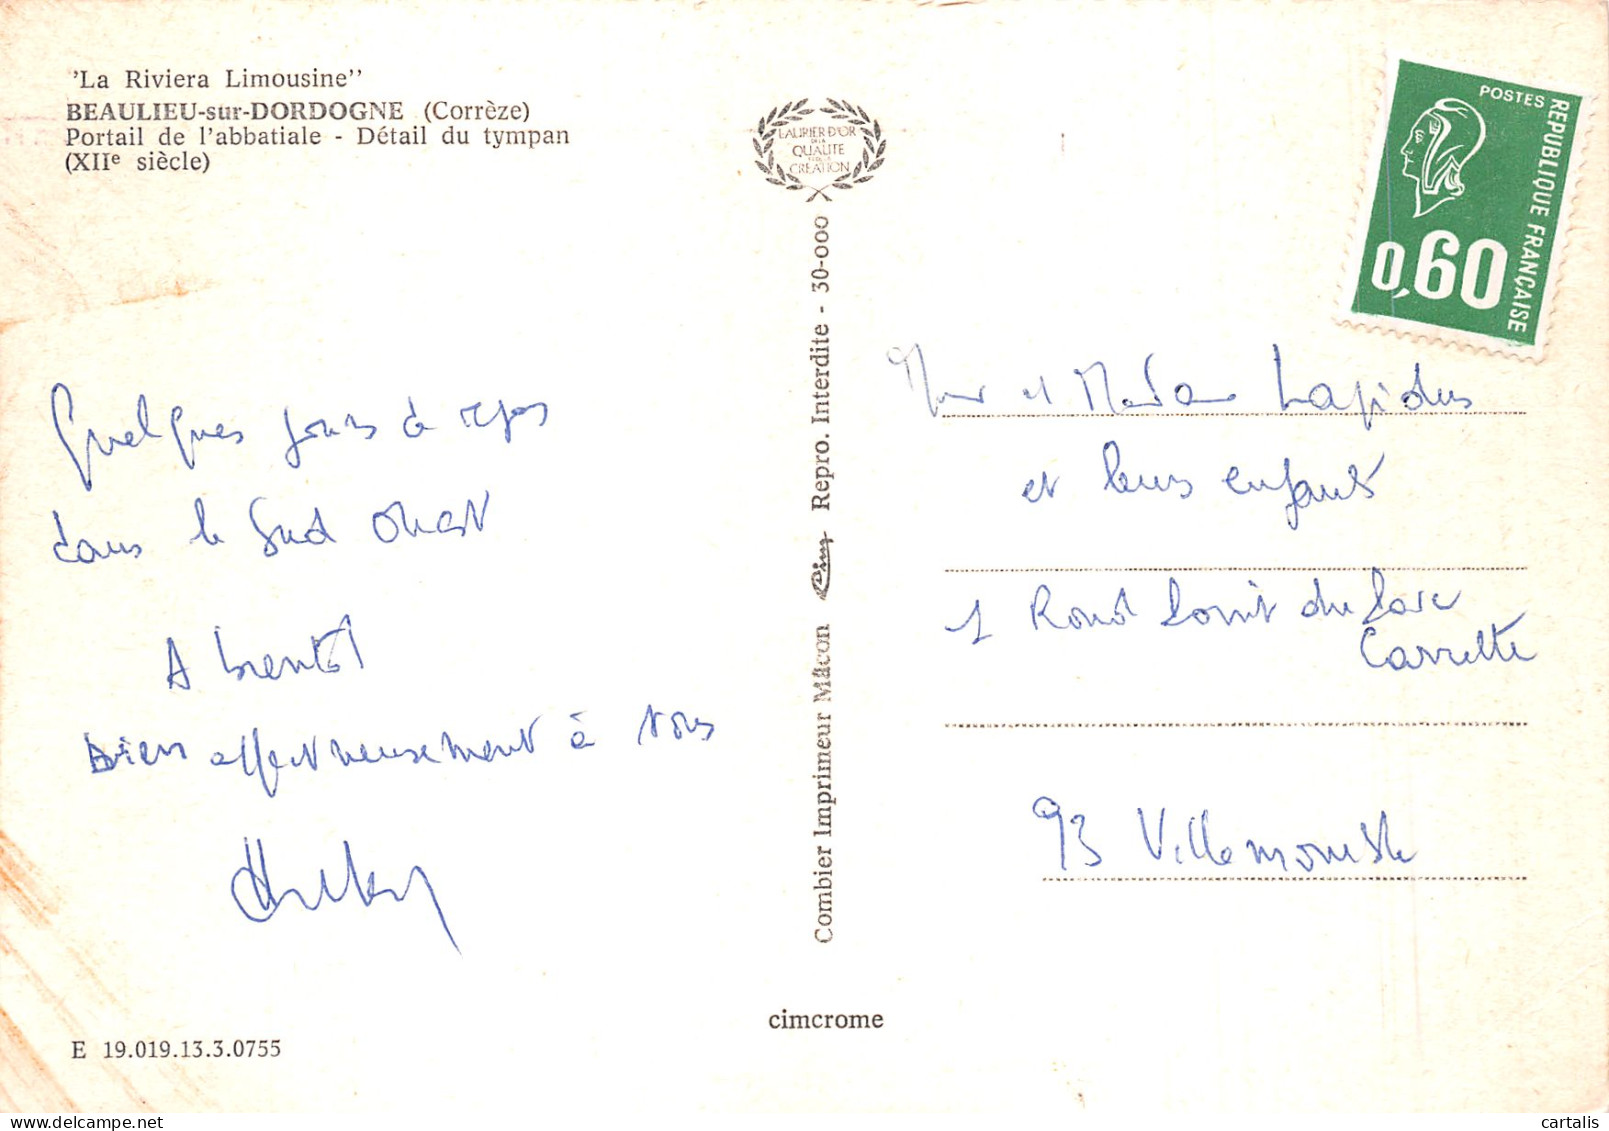 'La Riviera Limousine''
BEAULIEU-sur-DORDOGNE (Corrèze)
Portail de l'abbatiale - Détail du tympan
(XIIe siècle)
Quelques jours de repos
dans le Sud Ouest
A bientôt
bien affectueusement à vous
E 19.019.13.3.0755
LAURIER D'OR
DE LA
QUALITÉ
CRÉATION
Combier Imprimeur Mâcon Cim Repro. Interdite - 30-000
cimcrome
POSTES
REPUBLIQUE FRANÇAISE
0,60
Mr et Madame Lapidus
et leurs enfants
1 Rond Point du Parc
Carrette
93 Villemomble
cartalis